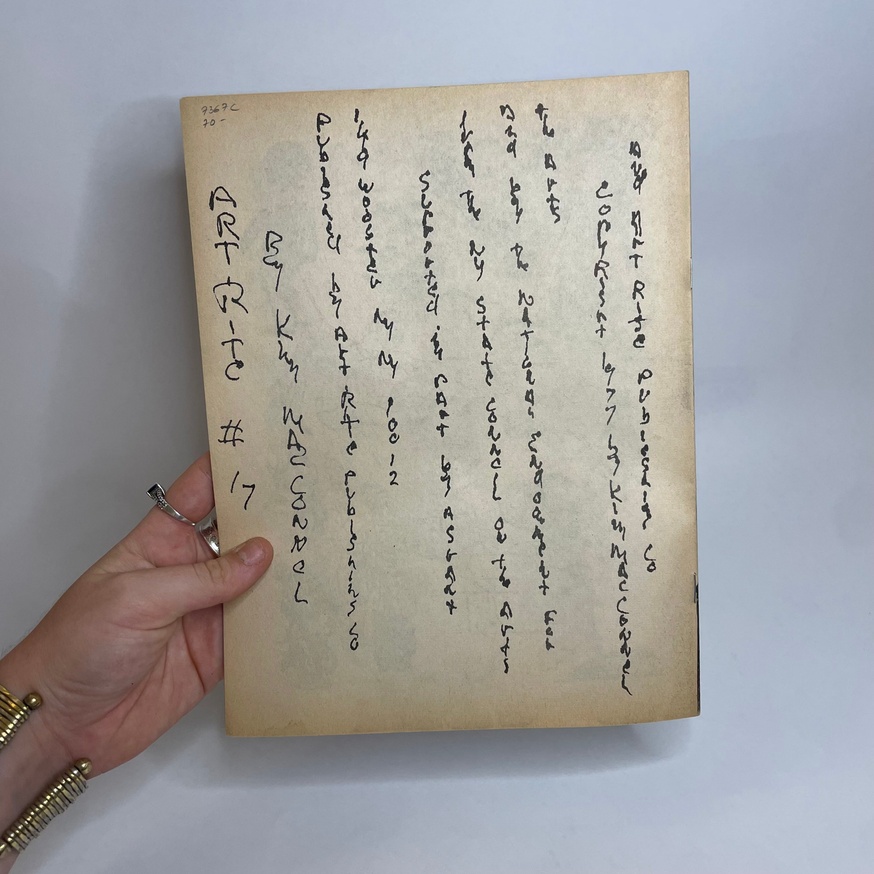 9367C
70-
ART-RITE # 17
By Kim MACCONNEL
Published by Art Rite Publishing Co
149 Wooster Ny Ny 10012
Supported in Part by A Grant
the Ny State on the Arts
And by the National for
the Arts
Copyright 1977 by Kim MacConnel
And Art Rite Publishing Co